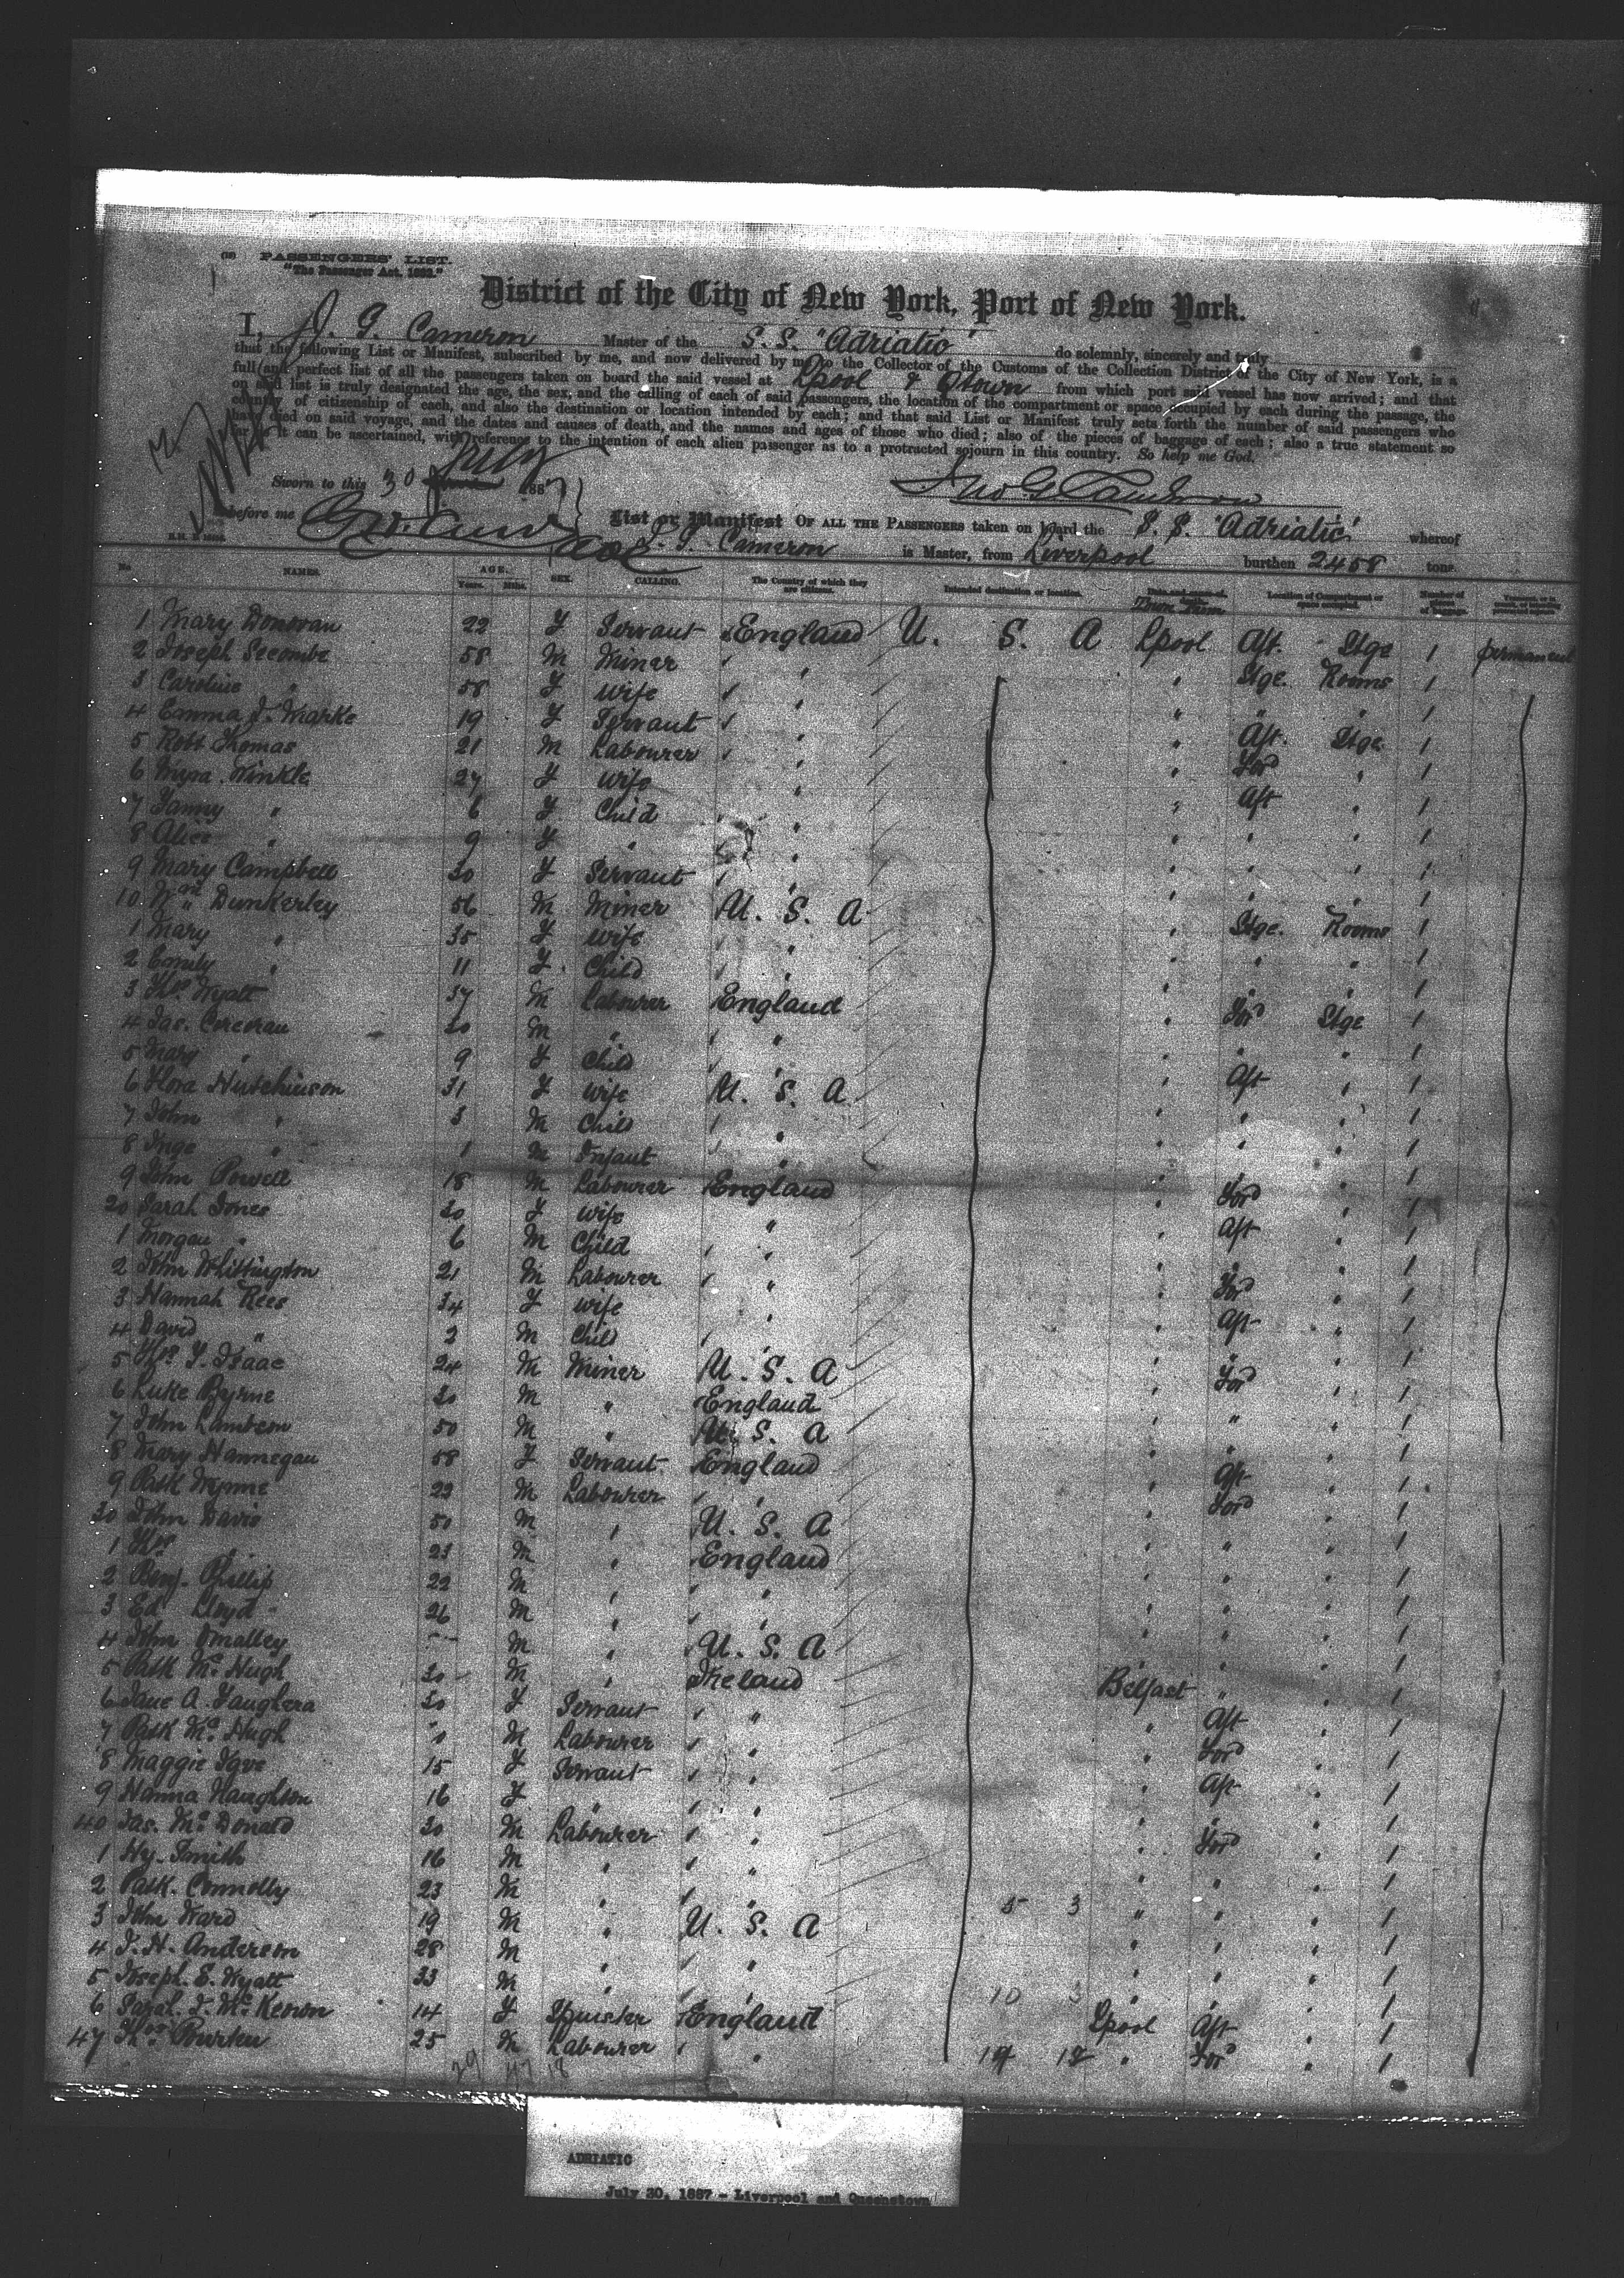 PASSENGERS' LIST.
"The Passenger Act, 1882."
District of the City of New York, Port of New York.
I, J. G. Cameron Master of the S.S. "Adriatic" do solemnly, sincerely and truly
that the following List or Manifest, subscribed by me, and now delivered by me to the Collector of the Customs of the Collection District of the City of New York, is a
full and perfect list of all the passengers taken on board the said vessel at Lpool & Qtown from which port said vessel has now arrived; and that
on said list is truly designated the age, the sex, and the calling of each of said passengers, the location of the compartment or space occupied by each during the passage, the
country of citizenship of each, and also the destination or location intended by each; and that said List or Manifest truly sets forth the number of said passengers who
have died on said voyage, and the dates and causes of death, and the names and ages of those who died; also of the pieces of baggage of each; also a true statement so
far as it can be ascertained, with reference to the intention of each alien passenger as to a protracted sojourn in this country. So help me God.
Sworn to this 30 July 1887
before me
List or Manifest OF ALL THE PASSENGERS taken on board the S.S. "Adriatic" whereof
J. G. Cameron is Master, from Liverpool burthen 2458 tons.
No NAMES. AGE. Years. Mths. SEX. CALLING. The Country of which they are citizens. Intended destination or location. Location of Compartment or space occupied. Number of pieces of baggage.
1 Mary Donovan 22 F Servant England U. S. A Lpool Aft. Stge 1 permanent
2 Joseph Secombe 58 M Miner " " Stge. Rooms 1
3 Caroline " 58 F Wife " " " " 1
4 Emma J. Marke 19 F Servant " " Aft. Stge 1
5 Robt Thomas 21 M Labourer " " For'd " 1
6 Myra Winkle 27 F Wife " " Aft " 1
7 Fanny " 6 F Child " " " " 1
8 Alice " 9 F " " " " " 1
9 Mary Campbell 30 F Servant " " " " 1
10 Wm Dunkerley 56 M Miner U. S. A " Stge. Rooms 1
1 Mary " 35 F Wife " " " " 1
2 Emily " 11 F Child " " " " 1
3 Thos Wyatt 37 M Labourer England " For'd Stge 1
4 Jas. Corcoran 20 M " " " " " 1
5 Mary " 9 F Child " " Aft " 1
6 Flora Hutchinson 31 F Wife U. S. A " " " 1
7 John " 3 M Child " " " " 1
8 Inge " 1 M Infant " " " "
9 John Powell 18 M Labourer England " For'd " 1
20 Sarah Jones 30 F Wife " " Aft " 1
1 Morgan " 6 M Child " " " " 1
2 John Whittington 21 M Labourer " " For'd " 1
3 Hannah Rees 34 F Wife " " Aft " 1
4 David " 2 M Child " " " " 1
5 Thos Y. Isaac 24 M Miner U. S. A " For'd " 1
6 Luke Byrne 30 M " England " " " 1
7 John Lambern 50 M " U. S. A " " " 1
8 Mary Hannegan 58 F Servant England " Aft " 1
9 Patk Wynne 22 M Labourer " " For'd " 1
30 John Davis 50 M " U. S. A " " " 1
1 Thos " 23 M " England " " " 1
2 Benj. Phillip 22 M " " " " " 1
3 Ed Lloyd 26 M " " " " " 1
4 John Omalley M " U. S. A " " " 1
5 Patk McHugh 30 M " Ireland Belfast " " 1
6 Jane A. 30 F Servant " " Aft " 1
7 Patk McHugh " M Labourer " " For'd " 1
8 Maggie 15 F Servant " " Aft " 1
9 Hanna Naughton 16 F " " " " " 1
40 Jas. McDonald 30 M Labourer " " For'd " 1
1 Hy. Smith 16 M " " " " " 1
2 Patk. Connolly 23 M " " 5 3 " " " 1
3 John Ward 19 M " U. S. A " " " 1
4 J. H. Anderson 28 M " " " " " 1
5 Joseph E. Wyatt 33 M " " 10 3 " " " 1
6 Sarah J. McKeown 14 F Spinster England Lpool Aft " 1
47 Thos 25 M Labourer " 14 12 " For'd " 1
29 47 18
ADRIATIC
July 30, 1887 - Liverpool and Queenstown